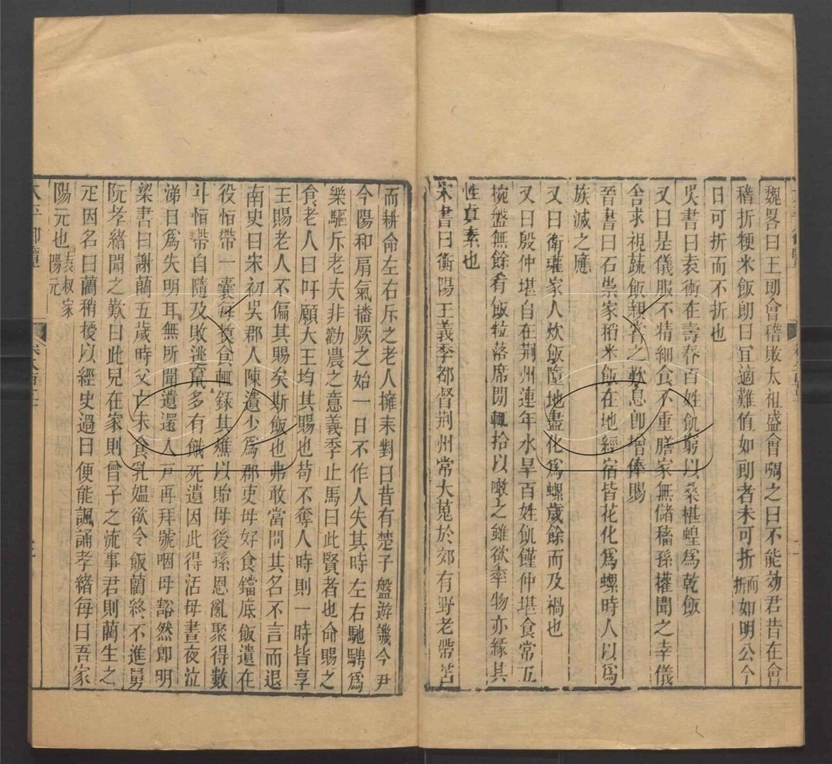 魏畧曰王朗會稽敗太祖盛會啁之曰不能効君昔在會
稽折粳米飯朗曰宜適難值如朗者未可折而折如明公今
日可折而不折也
吳書曰袁術在壽春百姓飢窮以桑椹蝗為乾飯
又曰是儀服不精細食不重膳家無儲穡孫權聞之幸儀
舍求視蔬飯親嘗之歎息即增俸賜
晉書曰石崇家稻米飯在地經宿皆花化為螺時人以為
族滅之應
又曰衛瓘家人炊飯墮地盡化為螺歲餘而及禍也
又曰殷仲堪自在荆州連年水旱百姓飢饉仲堪食常五
椀盤無餘肴飯粒落席間輒拾以噉之雖欲率物亦緣其
性真素也
宋書曰衡陽王義季都督荆州常大蒐於郊有野老帶苫
而耕命左右斥之老人擁耒對曰昔有楚子盤遊譏今尹
今陽和扇氣播厥之始一日不作人失其時左右馳騁為
樂驅斥老夫非勸農之意義季止馬曰此賢者也命賜之
食老人曰吁願大王均其賜也苟不奪人時則一時皆享
王賜老人不偏其賜矣斯飯也弗敢當問其名不言而退
南史曰宋初吳郡人陳遺少為郡吏母好食鐺底飯遺在
役恒帶一囊每煑食輒錄其燋以貽母後孫恩亂聚得數
斗恒帶自隨及敗逃竄多有餓死遺因此得活母晝夜泣
涕目為失明耳無所聞遺還入戶再拜號咽母豁然即明
梁書曰謝藺五歲時父亡未食乳媼欲令飯藺終不進舅
阮孝緒聞之歎曰此兒在家則曾子之流事君則藺生之
疋因名曰藺稍授以經史過目便能諷誦孝緒每曰吾家
陽元也